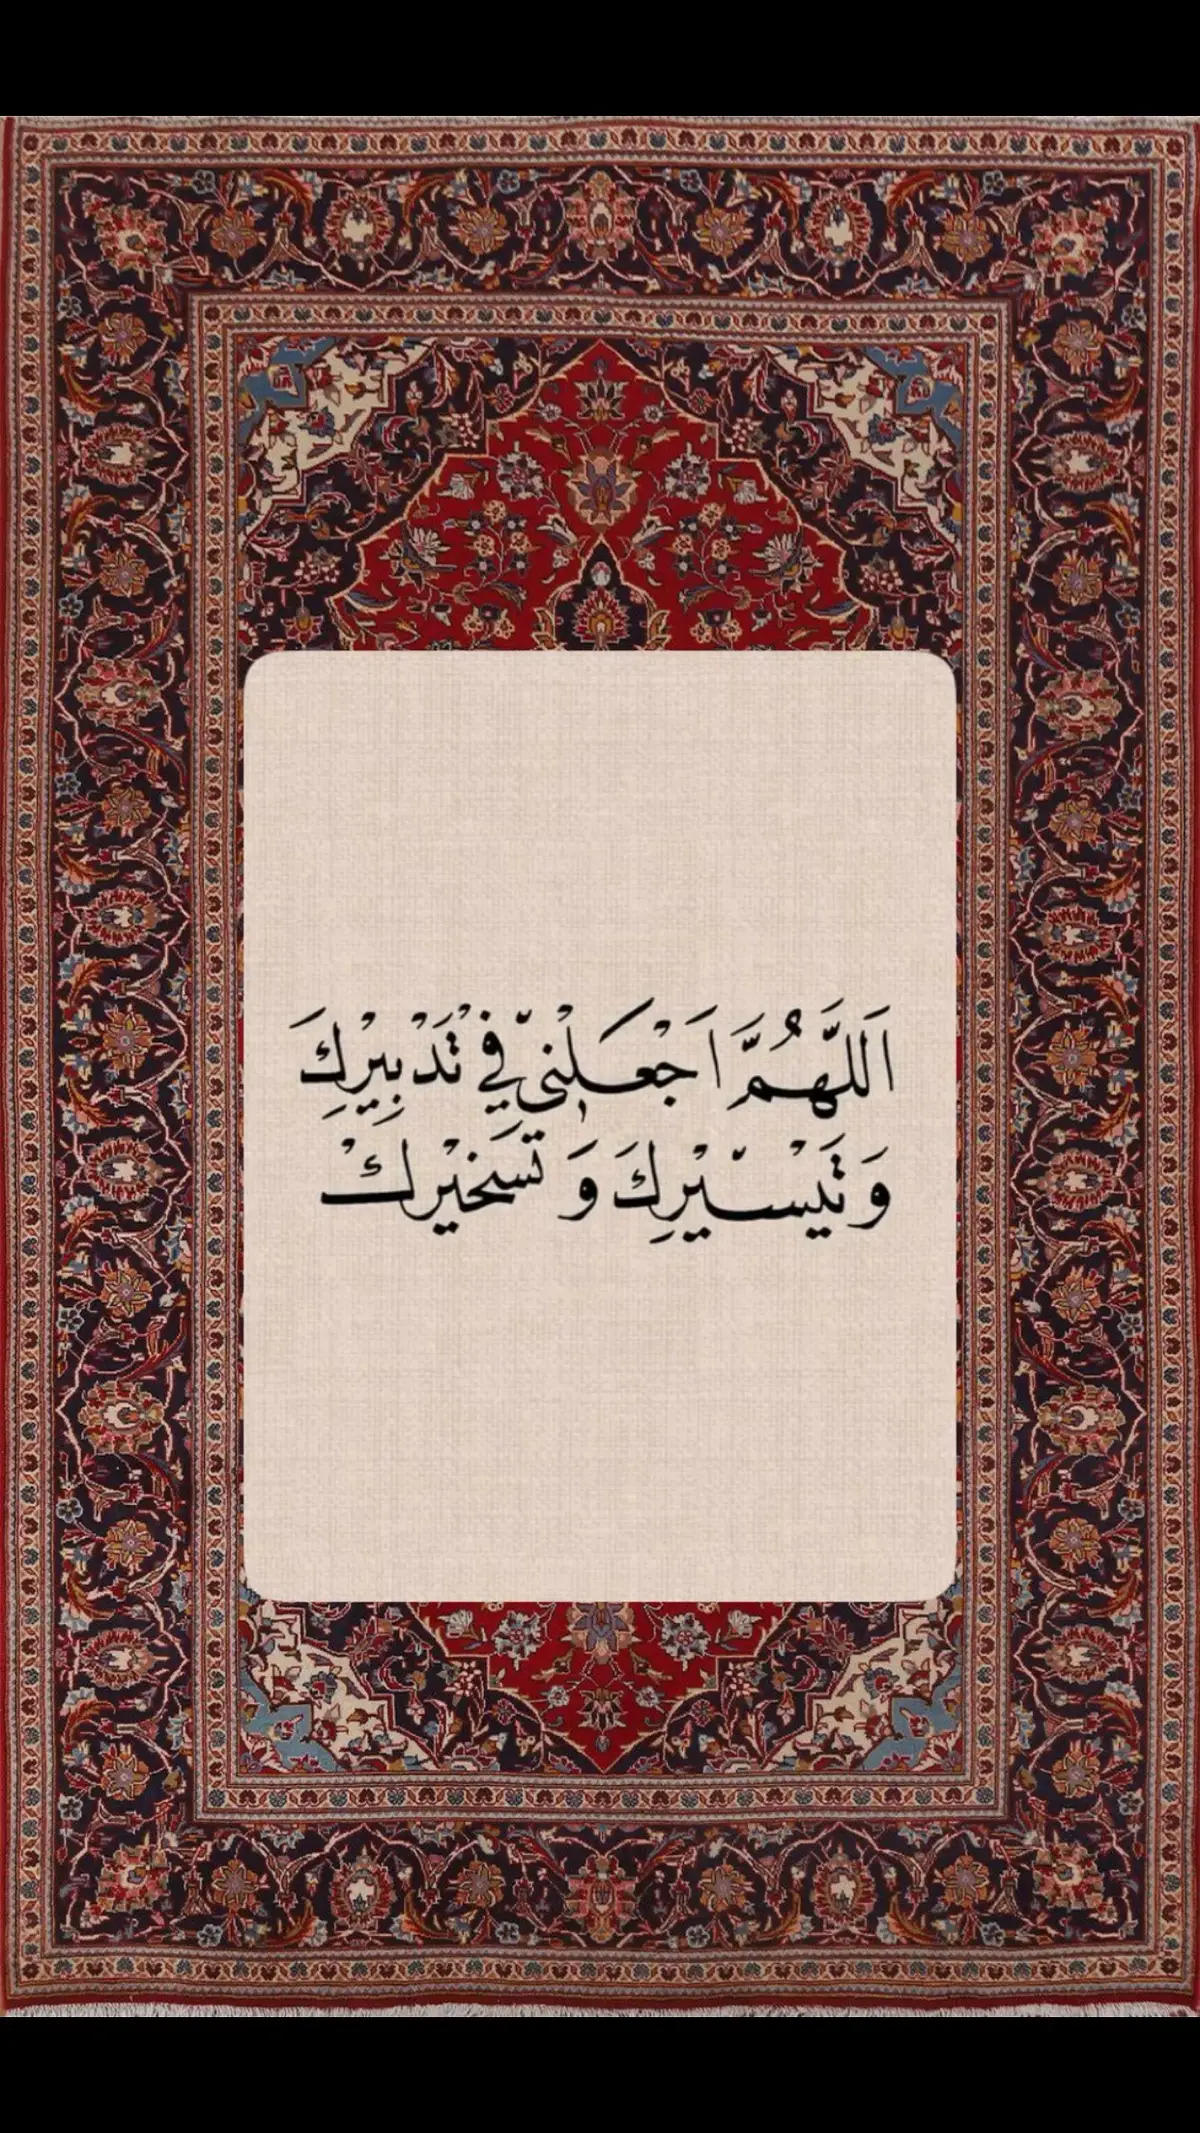 اَللَّهُمَّ اَجْعَلْنيّ فِي تَدْبِيْرِكَ
وَ تَيَسّْيْرِكَ وَ تَسَخيْرِكْ